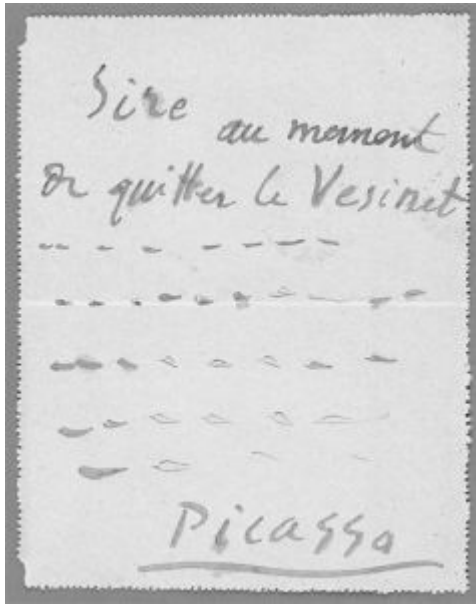 Sire
au moment
de quitter le Vesinet
Picasso